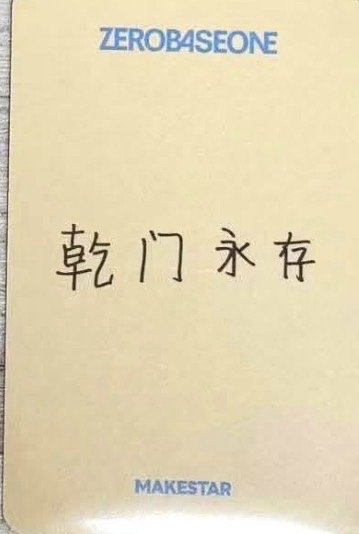 ZEROBASEONE
乾门永存
MAKESTAR